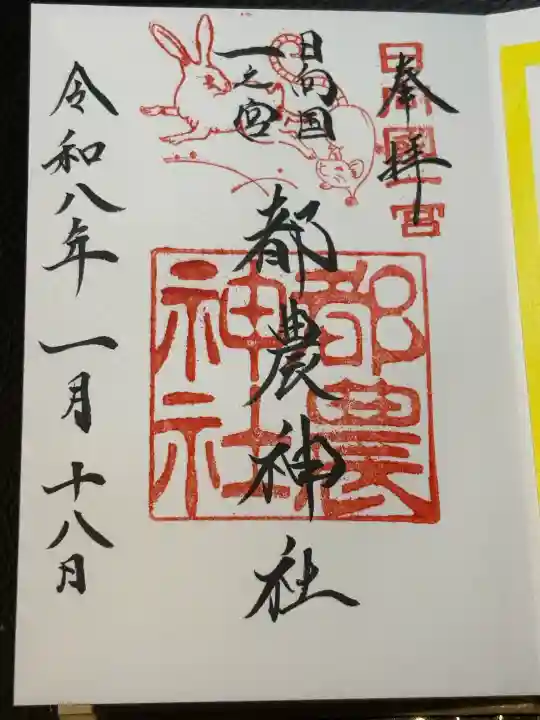 奉拝
日向國一宮
日向国
一之宮
都農神社
都農
神社
令和八年一月十八日